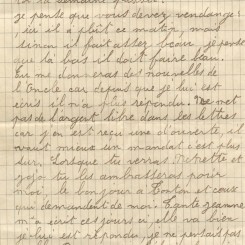 je pense que vous devez vendanger
ici il a plut ce matin, mais
sinon il fait assez beau je pense
que la bas il doit faire beau.
Tu me donneras des nouvelles de
l'oncle car depuis que je lui ai
écris il n'a plus répondu. Ne met
pas de l'argent libre dans les lettres
car j'en est reçu une d'ouverte, il
vaut mieux un mandat c'est plus
sur. Lorsque tu verras Pierette et
jojo tu les ambrasseras pour
moi, le bonjour à Tonton et ceux
qui demandent de moi. Tante jeanne
m'a écrit ces jours ci elle va bien
je lui est répondu, je ne pertait pas